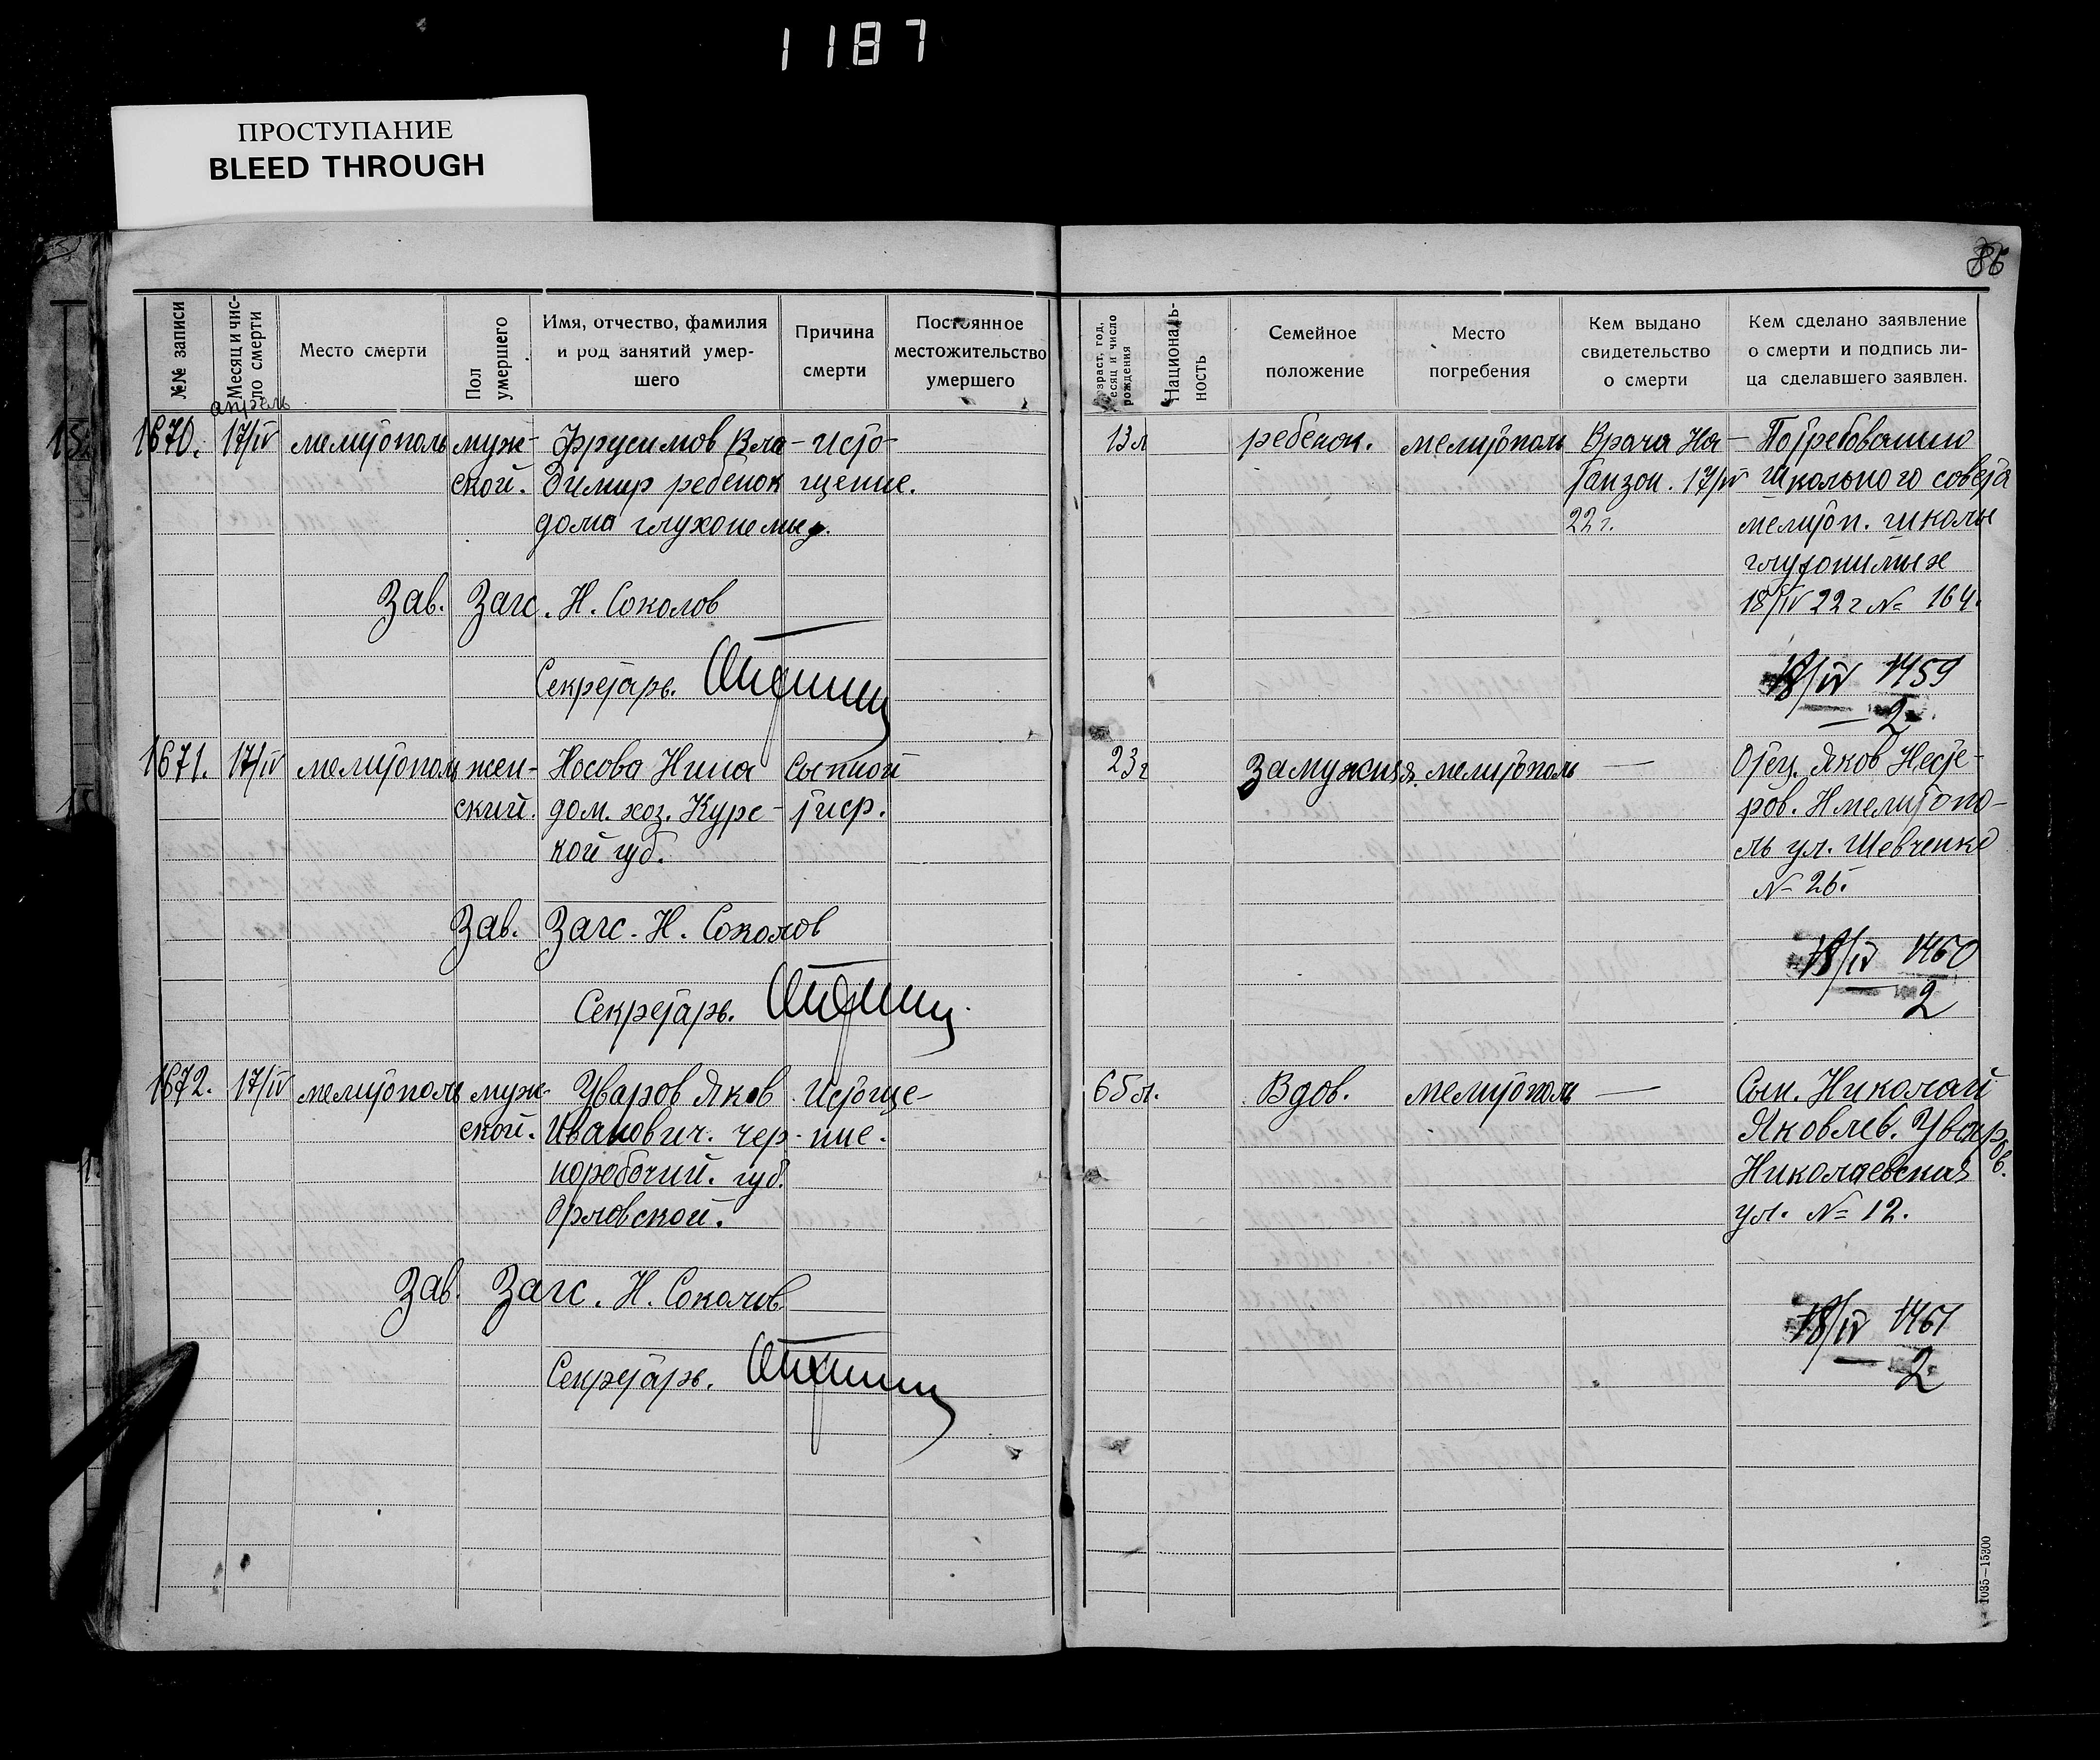 1187
ПРОСТУПАНИЕ
BLEED THROUGH
86
№№ записи
Месяц и чис-
ло смерти
Место смерти
Пол
умершего
Имя, отчество, фамилия
и род занятий умер-
шего
Причина
смерти
Постоянное
местожительство
умершего
Возраст, год,
месяц и число
рождения
Националь-
ность
Семейное
положение
Место
погребения
Кем выдано
свидетельство
о смерти
Кем сделано заявление
о смерти и подпись ли-
ца сделавшего заявлен.
апрель
1670. 17/IV мелитополь муж- Фрусимов Вла- исто- 13л ребенок. мелитополь Врача На- По требованию
ской. димир ребенок щение. танзон. 17/IV школьного совета
дома глухонемых. 22 г. мелитоп. школы
глухонимых
Зав. Загс. Н. Соколов 18/IV 22 г № 164.
Секретарь. 18/IV 1459
2
1671. 17/IV мелитополь жен- Носова Нина Сыпной 23г Замужняя. мелитополь — Отец. Яков Несте-
ский. дом. хоз. Курс- тиф. ров. Н мелитопо-
кой губ. ль ул. Шевченко
№ 26.
Зав. Загс. Н. Соколов
18/IV 1460
Секретарь. 2
1672. 17/IV мелитополь муж- Уваров Яков Истоще- 65л. Вдов. мелитополь — Сын. Николай
ской. Иванович. чер- ние. Яковлев. Уваров.
норобочий. губ. Николаевская
Орловской. ул. № 12.
Зав. Загс. Н. Соколов.
18/IV 1461
Секретарь. 2
1035—15300